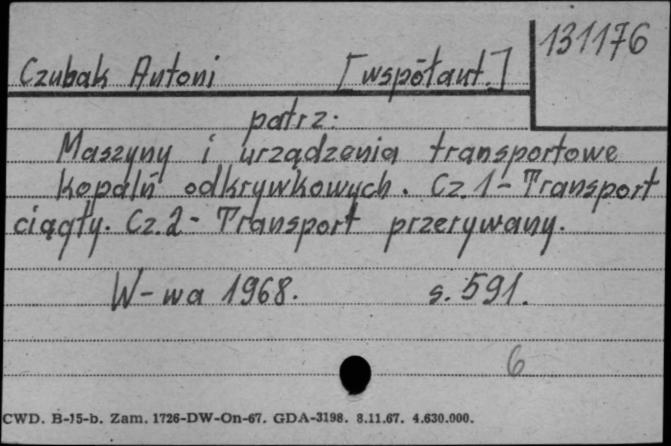 131176
Czubak Antoni [współaut.]
patrz:
Maszyny i urządzenia transportowe
kopalń odkrywkowych. Cz. 1 - Transport
ciągły. Cz. 2 - Transport przerywany.
W-wa 1968. s. 591.
6
CWD. B-15-b. Zam. 1726-DW-On-67. GDA-3198. 8.11.67. 4.630.000.